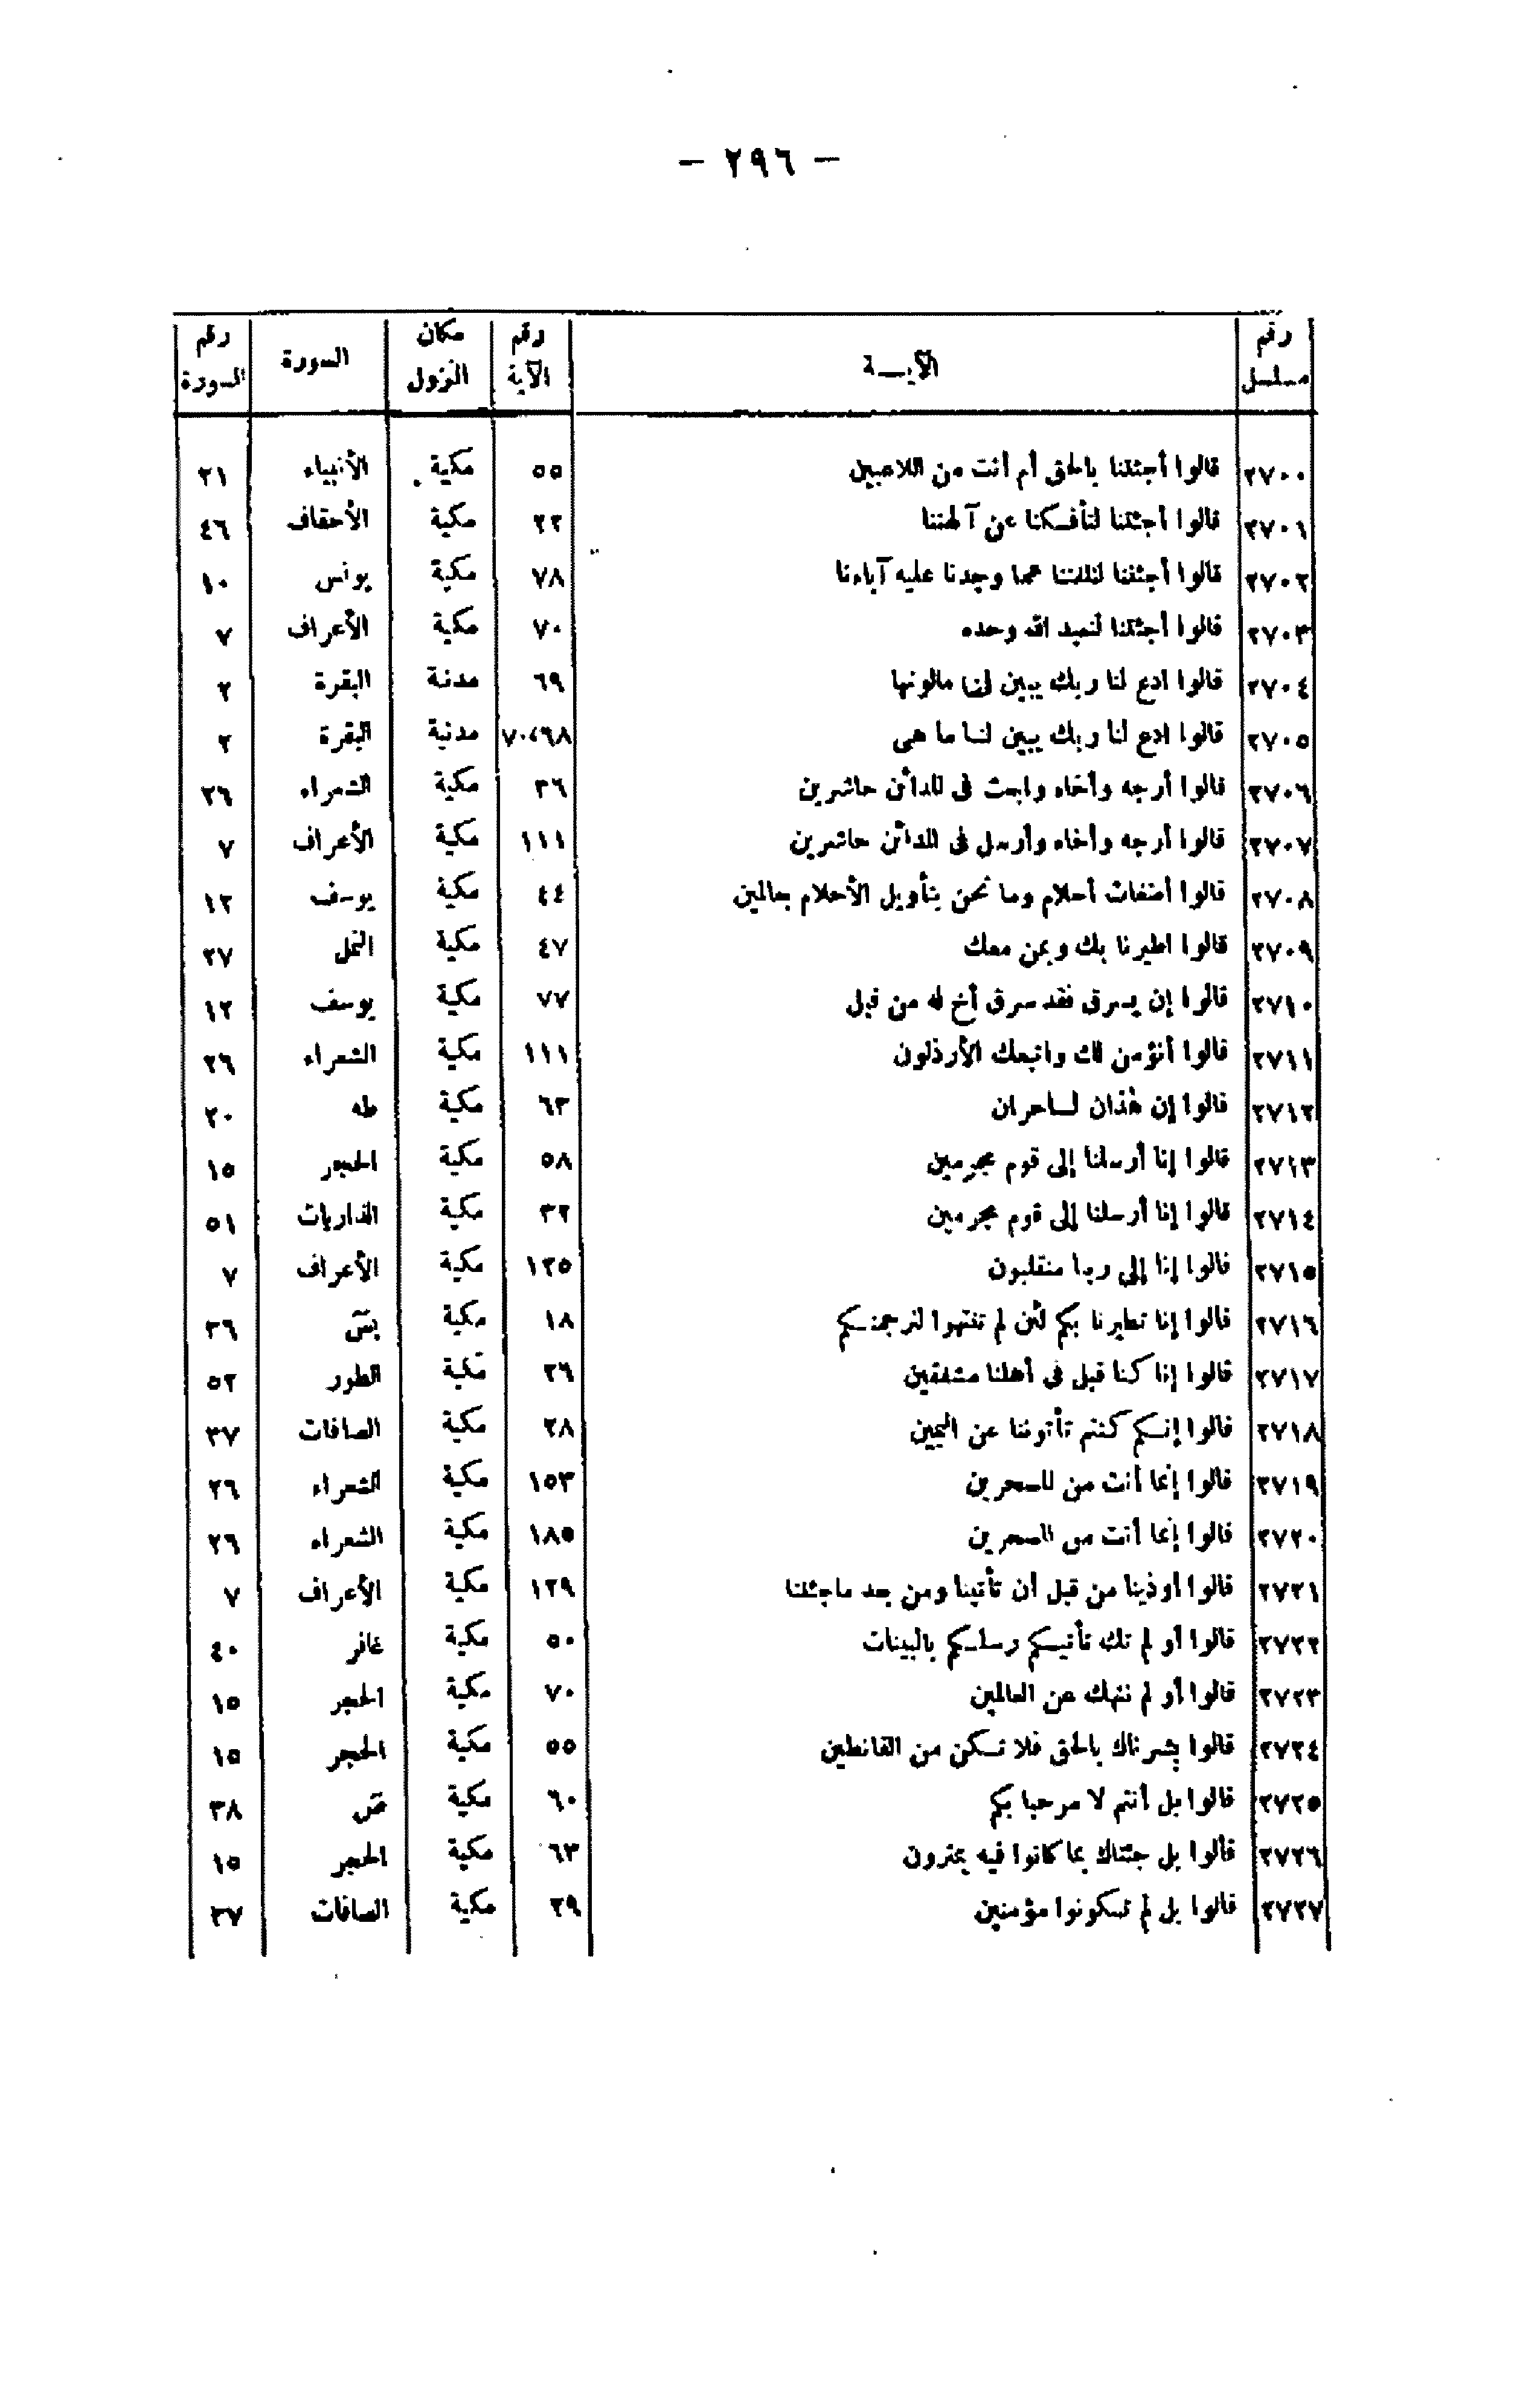 — ٢٩٦ —
رقم مسلسل | الآيـــة | رقم الآية | مكان النزول | السورة | رقم السورة
٢٧٠٠ | قالوا أجئتنا بالحق أم أنت من اللاعبين | ٥٥ | مكية | الأنبياء | ٢١
٢٧٠١ | قالوا أجئتنا لتأفكنا عن آلهتنا | ٢٢ | مكية | الأحقاف | ٤٦
٢٧٠٢ | قالوا أجئتنا لتلفتنا عما وجدنا عليه آباءنا | ٧٨ | مكية | يونس | ١٠
٢٧٠٣ | قالوا أجئتنا لنعبد الله وحده | ٧٠ | مكية | الأعراف | ٧
٢٧٠٤ | قالوا ادع لنا ربك يبين لنا مالونها | ٦٩ | مدنية | البقرة | ٢
٢٧٠٥ | قالوا ادع لنا ربك يبين لنا ما هى | ٧٠،٦٨ | مدنية | البقرة | ٢
٢٧٠٦ | قالوا أرجه وأخاه وابعث فى المدائن حاشرين | ٣٦ | مكية | الشعراء | ٢٦
٢٧٠٧ | قالوا أرجه وأخاه وأرسل فى المدائن حاشرين | ١١١ | مكية | الأعراف | ٧
٢٧٠٨ | قالوا أضغاث أحلام وما نحن بتأويل الأحلام بعالمين | ٤٤ | مكية | يوسف | ١٢
٢٧٠٩ | قالوا اطيرنا بك وبمن معك | ٤٧ | مكية | النمل | ٢٧
٢٧١٠ | قالوا إن يسرق فقد سرق أخ له من قبل | ٧٧ | مكية | يوسف | ١٢
٢٧١١ | قالوا أنؤمن لك واتبعك الأرذلون | ١١١ | مكية | الشعراء | ٢٦
٢٧١٢ | قالوا إن هٰذان لساحران | ٦٣ | مكية | طه | ٢٠
٢٧١٣ | قالوا إنا أرسلنا إلى قوم مجرمين | ٥٨ | مكية | الحجر | ١٥
٢٧١٤ | قالوا إنا أرسلنا إلى قوم مجرمين | ٣٢ | مكية | الذاريات | ٥١
٢٧١٥ | قالوا إنا إلى ربنا منقلبون | ١٢٥ | مكية | الأعراف | ٧
٢٧١٦ | قالوا إنا تطيرنا بكم لئن لم تنتهوا لنرجمنكم | ١٨ | مكية | يسٓ | ٣٦
٢٧١٧ | قالوا إنا كنا قبل فى أهلنا مشفقين | ٢٦ | مكية | الطور | ٥٢
٢٧١٨ | قالوا إنكم كنتم تأتوننا عن اليمين | ٢٨ | مكية | الصافات | ٣٧
٢٧١٩ | قالوا إنما أنت من المسحرين | ١٥٣ | مكية | الشعراء | ٢٦
٢٧٢٠ | قالوا إنما أنت من المسحرين | ١٨٥ | مكية | الشعراء | ٢٦
٢٧٢١ | قالوا أوذينا من قبل أن تأتينا ومن بعد ماجئتنا | ١٢٩ | مكية | الأعراف | ٧
٢٧٢٢ | قالوا أو لم تك تأتيكم رسلكم بالبينات | ٥٠ | مكية | غافر | ٤٠
٢٧٢٣ | قالوا أو لم ننهك عن العالمين | ٧٠ | مكية | الحجر | ١٥
٢٧٢٤ | قالوا بشرناك بالحق فلا تكن من القانطين | ٥٥ | مكية | الحجر | ١٥
٢٧٢٥ | قالوا بل أنتم لا مرحبا بكم | ٦٠ | مكية | صٓ | ٣٨
٢٧٢٦ | قالوا بل جئناك بما كانوا فيه يمترون | ٦٣ | مكية | الحجر | ١٥
٢٧٢٧ | قالوا بل لم تكونوا مؤمنين | ٢٩ | مكية | الصافات | ٣٧